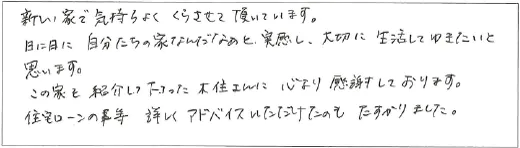 新しい家で気持ちよく くらさせて頂いています。
日に日に 自分たちの家なんだなあと、実感し、大切に 生活してゆきたいと
思います。
この家を 紹介して下さった 木住さんに 心より 感謝しております。
住宅ローンの事等 詳しく アドバイスいただけたのも たすかりました。